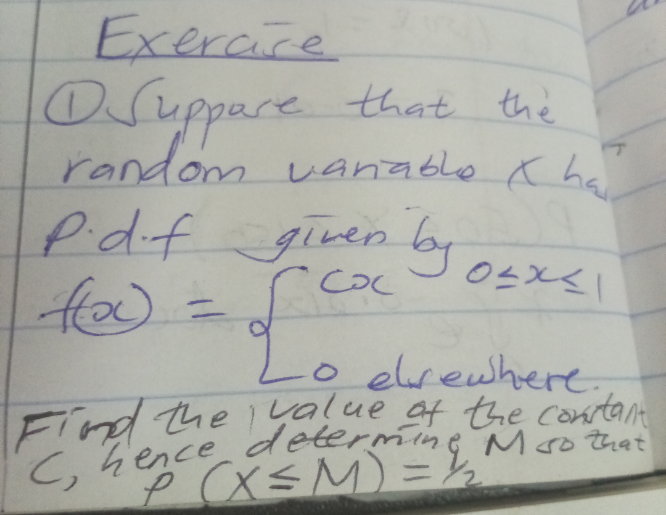 Exercise
① Suppose that the
random variable X has
p.d.f given by
f(x) = { cx 0≤x≤1
0 elsewhere.
Find the value of the constant
C, hence determine M so that
P (X≤M) = 1/2